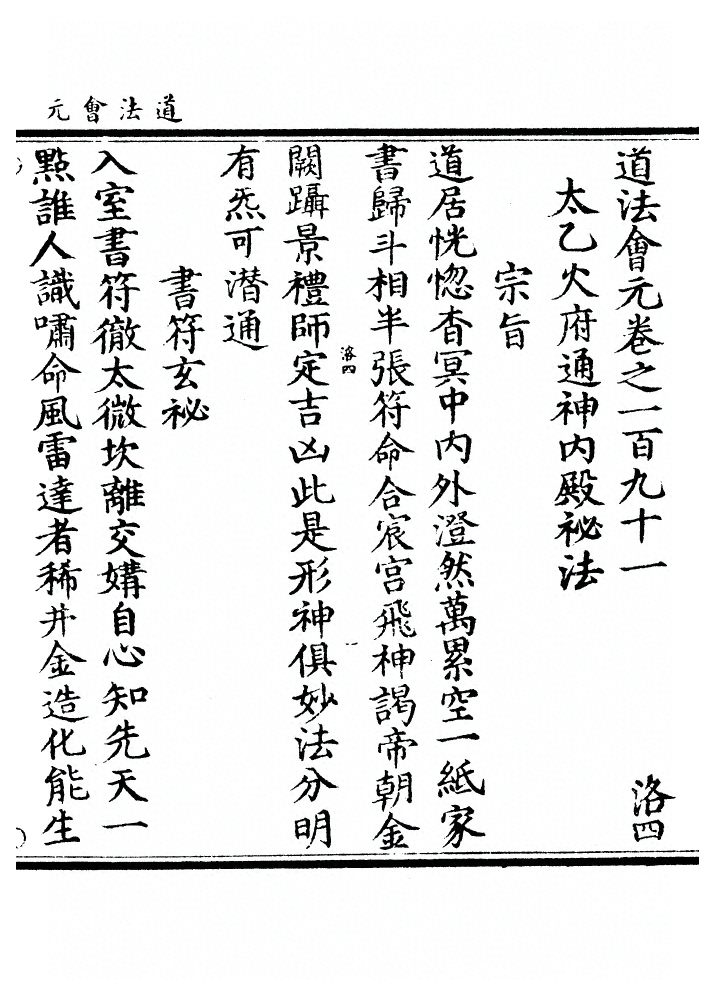 道法會元
道法會元卷之一百九十一 洛四
太乙火府通神內殿祕法
宗旨
道居恍惚杳冥中內外澄然萬累空一紙家
書歸斗相半張符命合宸宮飛神謁帝朝金
洛四
闕躡景禮師定吉凶此是形神俱妙法分明
有炁可潛通
書符玄祕
入室書符徹太微坎離交媾自心知先天一
點誰人識嘯命風雷達者稀井金造化能生